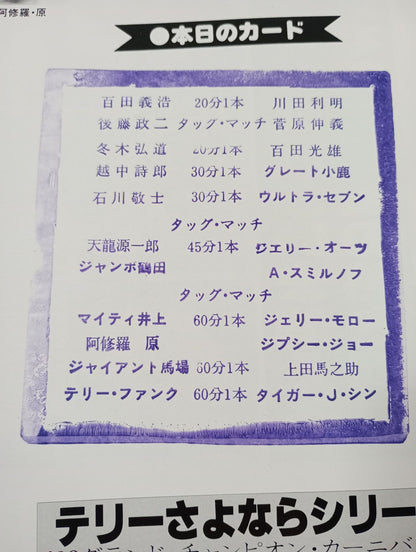 阿修羅・原
●本日のカード
百田義浩 20分1本 川田利明
後藤政二 タッグ・マッチ 菅原伸義
冬木弘道 20分1本 百田光雄
越中詩郎 30分1本 グレート小鹿
石川敬士 30分1本 ウルトラ・セブン
タッグ・マッチ
天龍源一郎 45分1本 ジエリー・オーツ
ジャンボ鶴田 A・スミルノフ
タッグ・マッチ
マイティ井上 60分1本 ジェリー・モロー
阿修羅 原 ジプシー・ジョー
ジャイアント馬場 60分1本 上田馬之助
テリー・ファンク 60分1本 タイガー・J・シン
テリーさよならシリー
グランド・チャンピオン・カーニバ